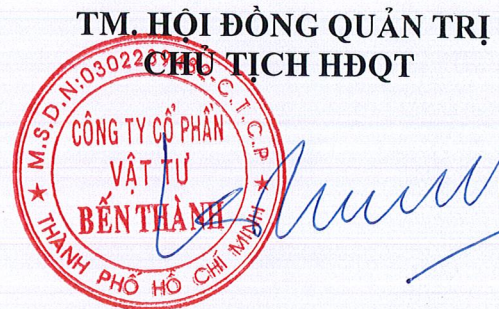 TM. HỘI ĐỒNG QUẢN TRỊ
CHỦ TỊCH HĐQT
CÔNG TY CỔ PHẦN
VẬT TƯ
BẾN THÀNH
THÀNH PHỐ HỒ CHÍ MINH